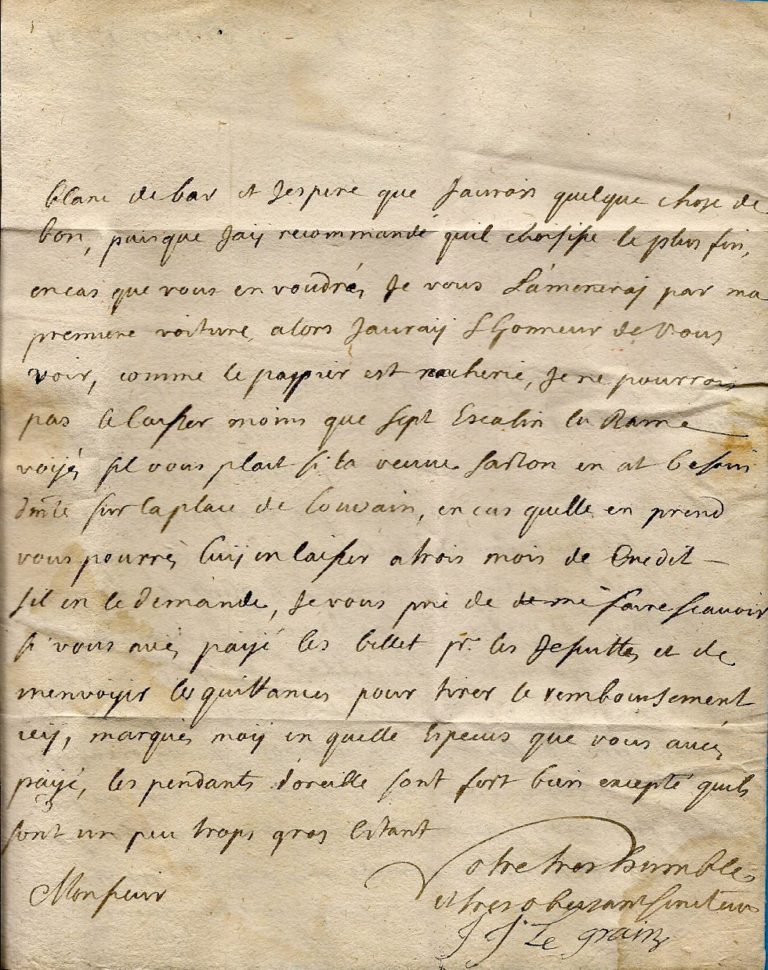 blanc de bar et Jespere que Jaurais quelque chose de
bon, puisque Jaij recommandé quil choisisse le plus fin,
en cas que vous en voudrés, Je vous L'ameneraj par ma
premiere voiture, alors Jauraij L'honneur de vous
voir, comme le pappier est rencherie, Je ne pourrois
pas le laisser moins que sept Escalin la Rame
voijés sil vous plait si la veuve en at besoin
sur la place de Louvain, en cas quelle en prend
vous pourrés luij en laisser a trois mois de Credit –
sil en le demande, Je vous prie de de me faire scavoir
si vous avés paijé les billet pr. les Jesuittes et de
menvoijer les quittances pour tirer le remboursement
icij, marqués moij en quelle Especes que vous avés
paijé, les pendants d'oreille sont fort bien excepté quils
sont un peu trops gros Estant
Monsieur
Votre tres humble
et tres obeisant serviteur
J J Le grain